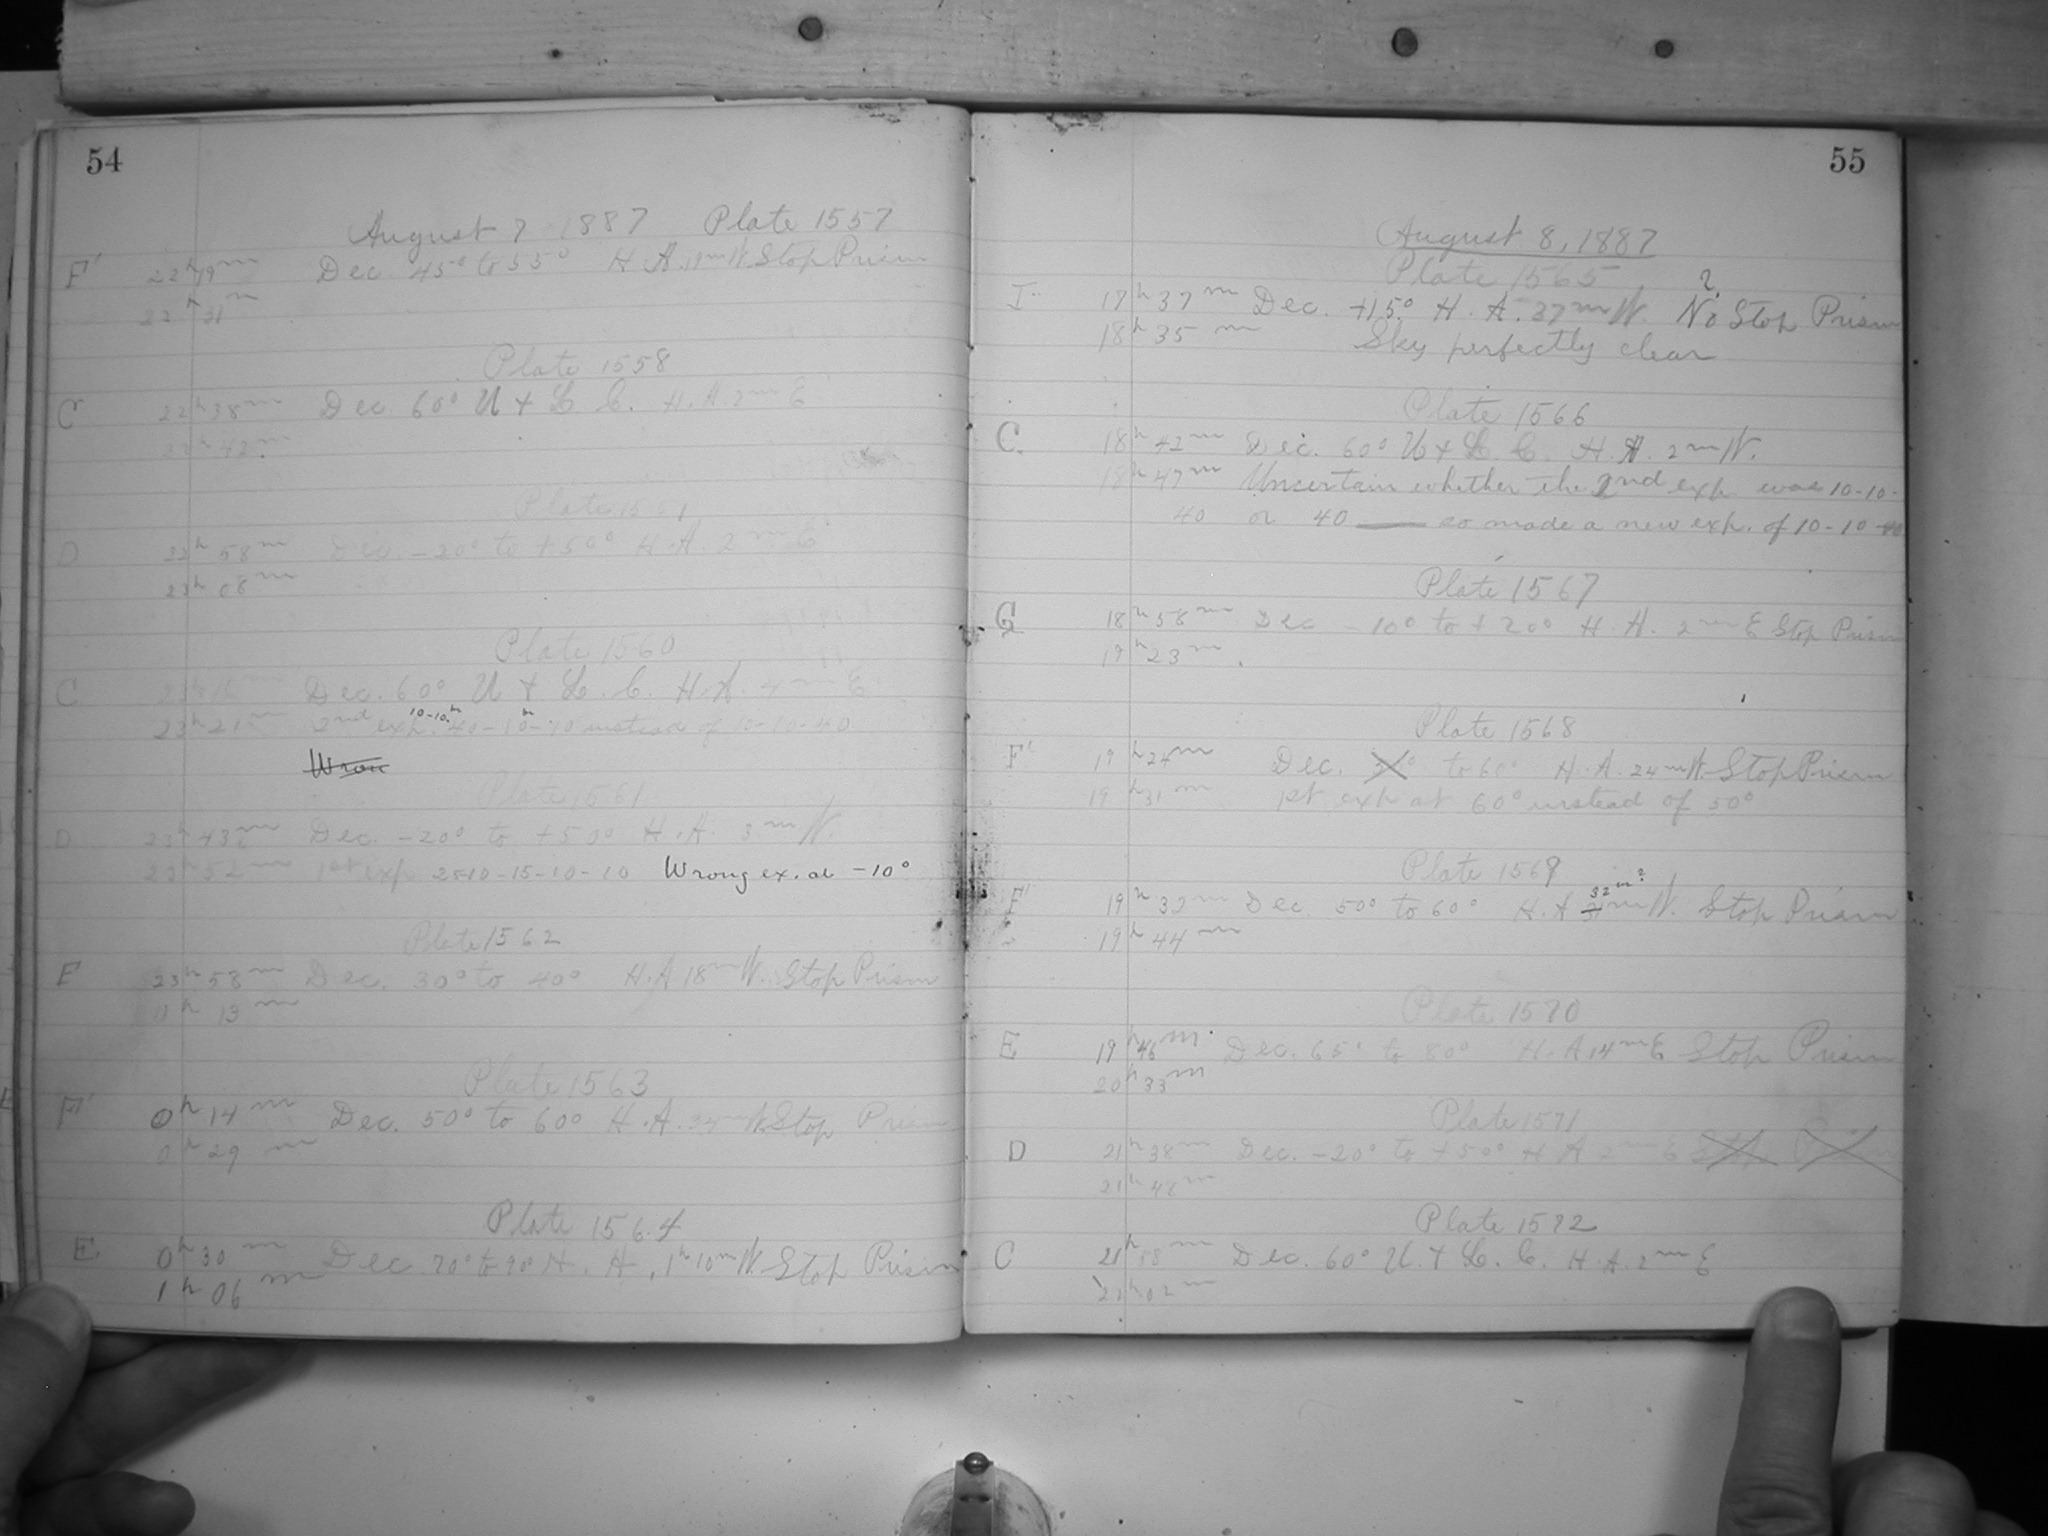 54
August 7 1887 Plate 1557
F' 22h 19m Dec. 45° to 55° H.A. 19m W. Stop Prism
22h 31m
Plate 1558
C 22h 38m Dec. 60° U + L. C. H.A. 2m E
22h 42m
Plate
D 22h 58m Dec. -20° to +50° H.A. 2m E
23h 08m
Plate 1560
C Dec. 60° U + L. C. H.A. 4m E
10-10
23h 21m 2nd exp. 40-10-10 instead of 10-10-40
Wron
Plate 1561
D 23h 43m Dec. -20° to +50° H.A. 3m W.
23h 52m 1st exp 10-15-10-10 Wrong ex. at -10°
Plate 1562
F 23h 58m Dec. 30° to 40° H.A 18m W. Stop Prism
0h 13m
Plate 1563
F' 0h 14m Dec. 50° to 60° H.A. 34m W. Stop Prism
0h 29m
Plate 1564
E 0h 30m Dec. 70° to 90° H.A. 1h 10m W. Stop Prism
1h 06m
55
August 8, 1887
Plate 1565
?
I 17h 37m Dec. +15° H.A. 37m W. No Stop Prism
18h 35m Sky perfectly clear
Plate 1566
C. 18h 42m Dec. 60° U + L. C. H.A. 2m W.
18h 47m Uncertain whether the 2nd exp. was 10-10-
40 or 40 so made a new exp. of 10-10-40
Plate 1567
G 18h 58m Dec -10° to +20° H.A. 2m E Stop Prism
19h 23m.
Plate 1568
F' 19h 24m Dec. to 60° H.A. 24m W. Stop Prism
19h 31m 1st exp at 60° instead of 50°
Plate 1569
32m?
F' 19h 32m Dec. 50° to 60° H.A m W. Stop Prism
19h 44m
Plate 1570
E 19h 46m Dec. 65° to 80° H.A 14m E Stop Prism
20h 33m
Plate 1571
D 21h 38m Dec. -20° to +50° H A 2m E Stop Prism
21h 48m
Plate 1572
C 21h 58m Dec. 60° U. + L. C. H.A. 2m E
22h 02m